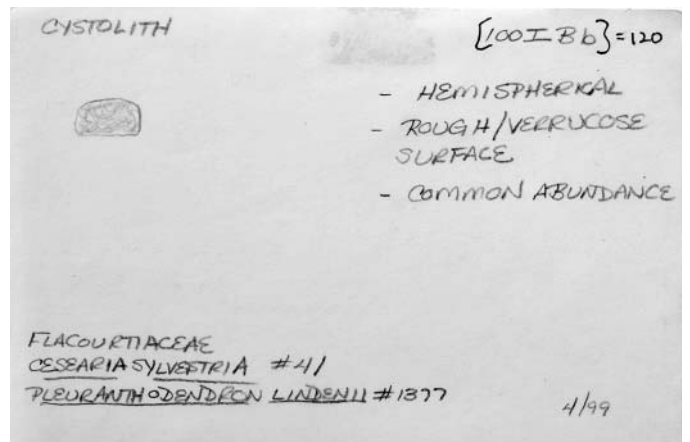 CYSTOLITH
{100IBb}=120
- HEMISPHERICAL
- ROUGH/VERRUCOSE
SURFACE
- COMMON ABUNDANCE
FLACOURTIACEAE
CESEARIA SYLVESTRIA #41
PLEURANTHODENDRON LINDENII #1377
4/99